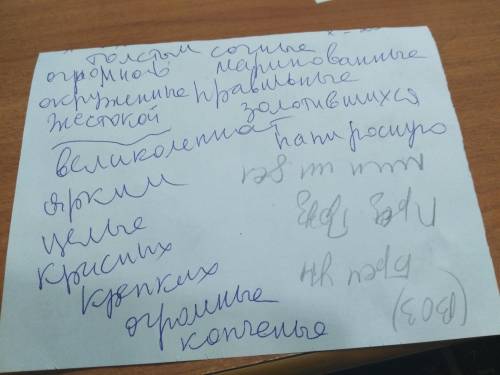 толстым сочные
огромной маринованные
окруженные правильные
жестокой золотившихся
великолепная папиросную
ярким
целые
крисных
крепких
огромные
копченые
(ВОЗ)